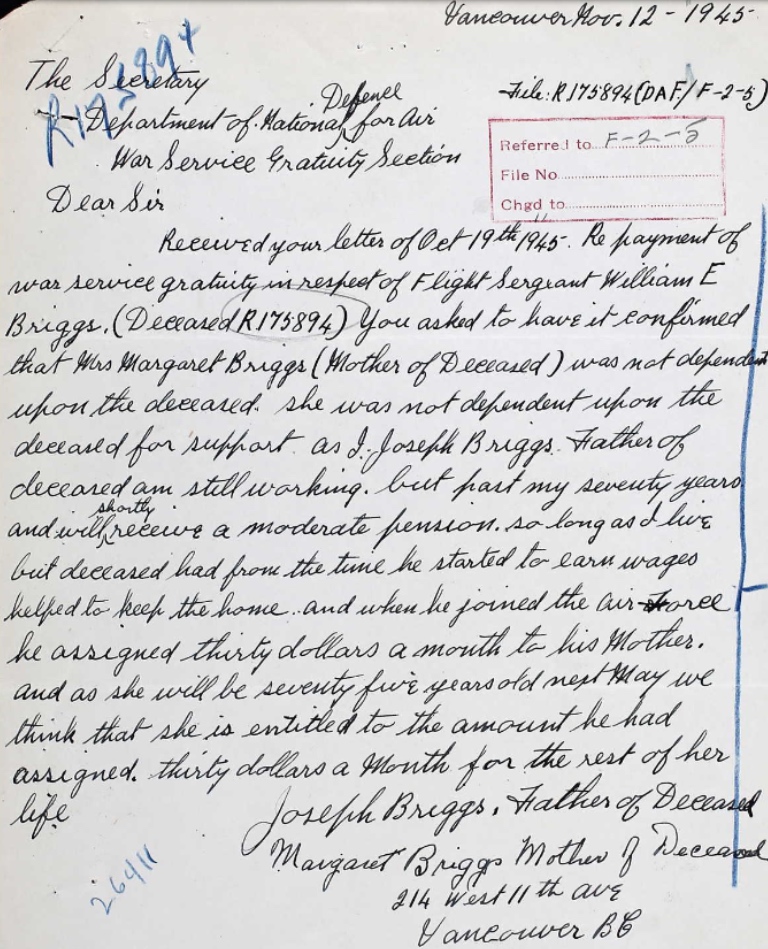 Vancouver Nov. 12 - 1945
R175894
The Secretary
Defence
File: R175894 (DAF/F-2-5)
Department of National, for Air
War Service Gratuity Section
Referred to F-2-5
File No
Chgd to
Dear Sir
Received your letter of Oct 19th 1945. Re payment of
war service gratuity in respect of Flight Sergeant William E
Briggs. (Deceased R175894) You asked to have it confirmed
that Mrs Margaret Briggs (Mother of Deceased) was not dependent
upon the deceased. she was not dependent upon the
deceased for support. as I. Joseph Briggs. Father of
deceased am still working. but past my seventy years
shortly
and will receive a moderate pension. so long as I live
but deceased had from the time he started to earn wages
helped to keep the home. and when he joined the air Force
he assigned thirty dollars a month to his Mother.
and as she will be seventy five years old next May we
think that she is entitled to the amount he had
assigned. thirty dollars a Month for the rest of her
life
Joseph Briggs. Father of Deceased
Margaret Briggs Mother of Deceased
214 West 11th ave
Vancouver BC